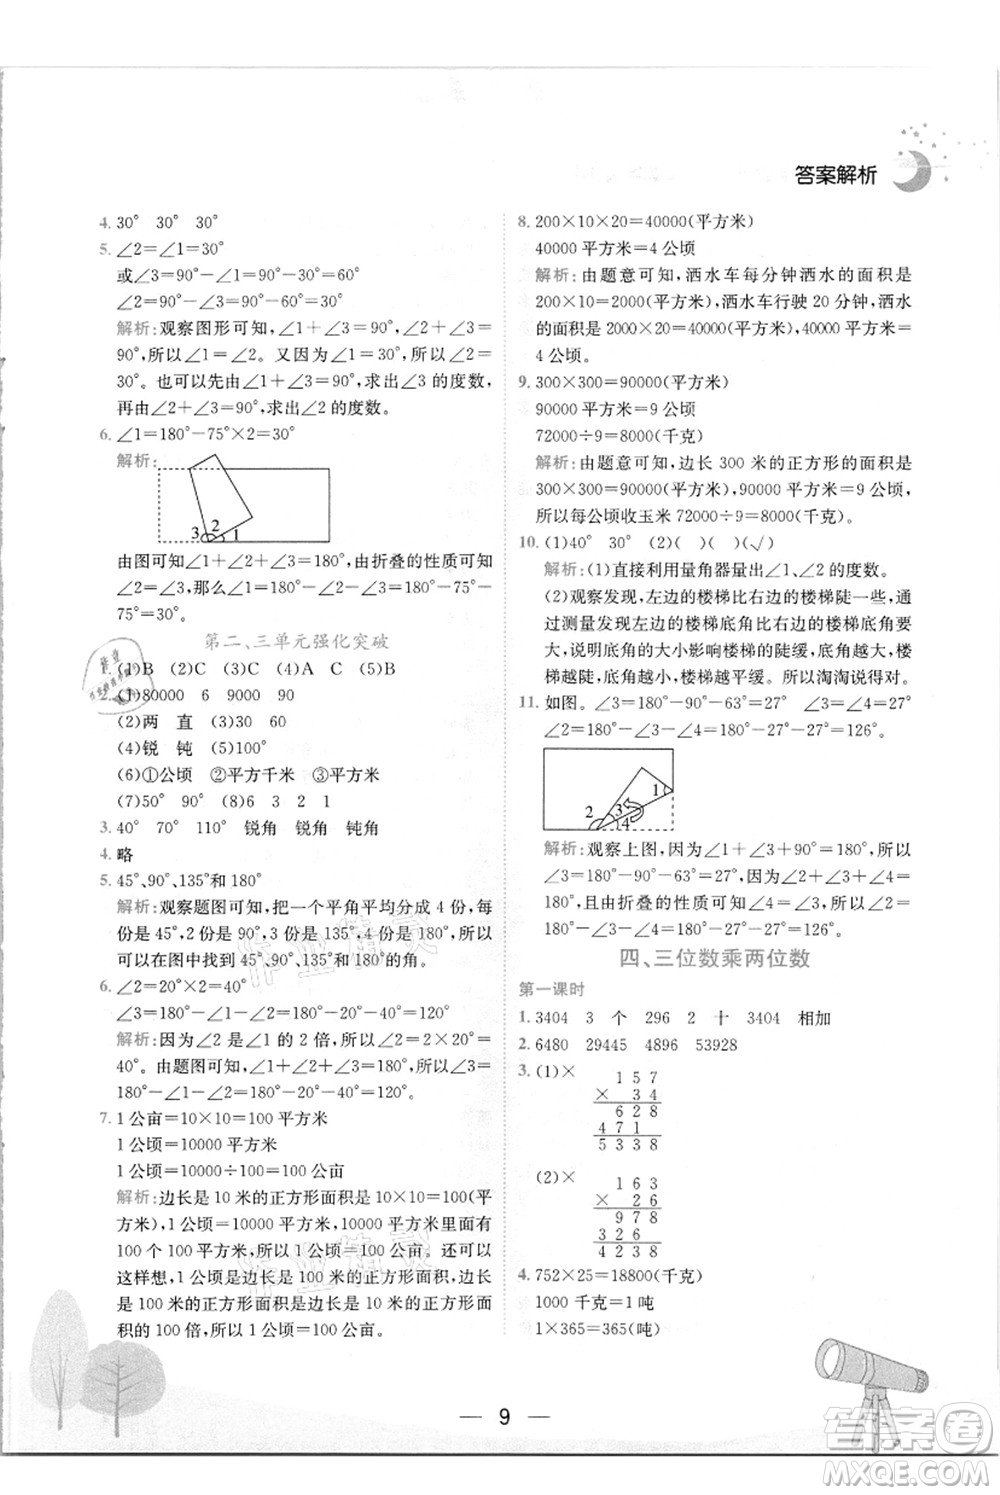 答案解析
4. 30° 30° 30°
5. ∠2=∠1=30°
或∠3=90°-∠1=90°-30°=60°
∠2=90°-∠3=90°-60°=30°
解析:观察图形可知,∠1+∠3=90°,∠2+∠3=
90°,所以∠1=∠2。又因为∠1=30°,所以∠2=
30°。也可以先由∠1+∠3=90°,求出∠3的度数,
再由∠2+∠3=90°,求出∠2的度数。
6. ∠1=180°-75°×2=30°
解析:
3 2 1
由图可知∠1+∠2+∠3=180°,由折叠的性质可知
∠2=∠3,那么∠1=180°-∠2-∠3=180°-75°-
75°=30°。
第二、三单元强化突破
1. (1)B (2)C (3)B (4)A (5)C
2. (1)80000 6 9000 90
(2)两 直 (3)30 60
(4)锐 钝 (5)100°
(6)①公顷 ②平方千米 ③平方米
(7)50° 90° (8)6 3 2 1
3. 40° 70° 110° 锐角 锐角 钝角
4. 略
5. 45°、90°、135°和180°
解析:观察题图可知,把一个平角平均分成4份,每
份是45°,2份是90°,3份是135°,4份是180°,所以
可以在图中找到45°、90°、135°、180°的角。
6. ∠2=20°×2=40°
∠3=180°-∠1-∠2=180°-20°-40°=120°
解析:因为∠2是∠1的2倍,所以∠2=20°×2=
40°。由题图可知∠1+∠2+∠3=180°,所以∠3=
180°-∠1-∠2=180°-20°-40°=120°。
7. 1公亩=10×10=100平方米
1公顷=10000平方米
1公顷=10000÷100=100公亩
解析:边长是10米的正方形面积是10×10=100(平
方米),1公顷=10000平方米,10000平方米里面有
100个100平方米,所以1公顷=100公亩。还可以
这样想,1公顷是边长是100米的正方形面积,边长
是100米的正方形面积是边长是10米的正方形面
积的100倍,所以1公顷=100公亩。
8. 200×10×20=40000(平方米)
40000平方米=4公顷
解析:由题意可知,洒水车每分钟洒水的面积是
200×10=2000(平方米),洒水车行驶20分钟,洒水
的面积是2000×20=40000(平方米),40000平方米=
4公顷。
9. 300×300=90000(平方米)
90000平方米=9公顷
72000÷9=8000(千克)
解析:由题意可知,边长300米的正方形的面积是
300×300=90000(平方米),90000平方米=9公顷,
所以每公顷收玉米72000÷9=8000(千克)。
10. (1)40° 30° (2)( ) ( ) (√)
解析:(1)直接利用量角器量出∠1、∠2的度数。
(2)观察发现,左边的楼梯比右边的楼梯陡一些,通
过测量发现,左边的楼梯底角比右边的楼梯底角
大,说明底角的大小影响楼梯的陡缓,底角越大,楼
梯越陡;底角越小,楼梯越平缓。所以淘淘说得对。
11. 如图。∠3=180°-∠1-90°=63° ∠4=27°
∠2=180°-∠3-∠4=180°-27°-27°=126°
2 3 4 1
解析:观察上图,∠1+∠3+90°=180°,所以∠3=
180°-∠1-90°=63°=27°。又因为∠2+∠3+∠4=
180°,且由折叠的性质可知∠3=∠4,所以∠2=
180°-∠3-∠4=180°-27°-27°=126°。
四、三位数乘两位数
第一课时
1. 3404 3 个 296 2 十 3404 相加
2. 6480 29445 4896 53928
3. (1)× 157
× 34
628
471
5338
(2)× 163
× 26
978
326
4238
4. 752×25=18800(千克)
1000千克=1吨
1×365=365(吨)
9
答案卷
MXQE.COM
作业精灵
作业精灵